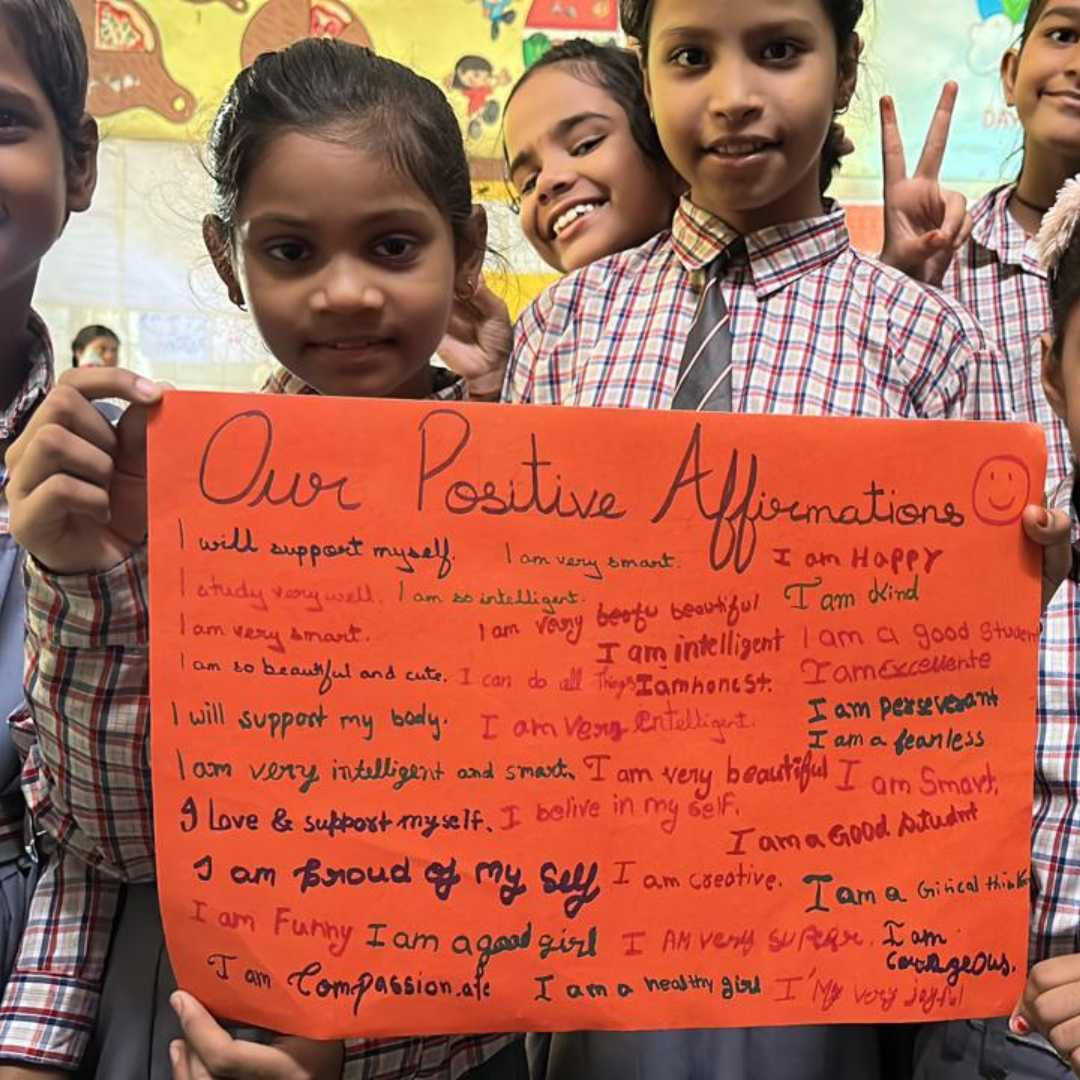 Our Positive Affirmations
I will support myself. I am very smart. I am Happy
I study very well. I am so intelligent. I am Kind
I am very smart. I am very beautiful
I am intelligent I am a good Student
I am so beautiful and cute. I can do all Things I am honest. I am Excellente
I will support my body. I am very entelligent. I am perseverant
I am a fearless
I am very intelligent and smart. I am very beautiful I am Smart.
I Love & support myself. I belive in my self.
I am a Good Studnt
I am Proud of My Self I am creative. I am a Ciritical think
I am Funny I am a good girl I AM very supear. I am
Courageous.
I am Compassionate I am a healthy girl I'My very joyful
DAY